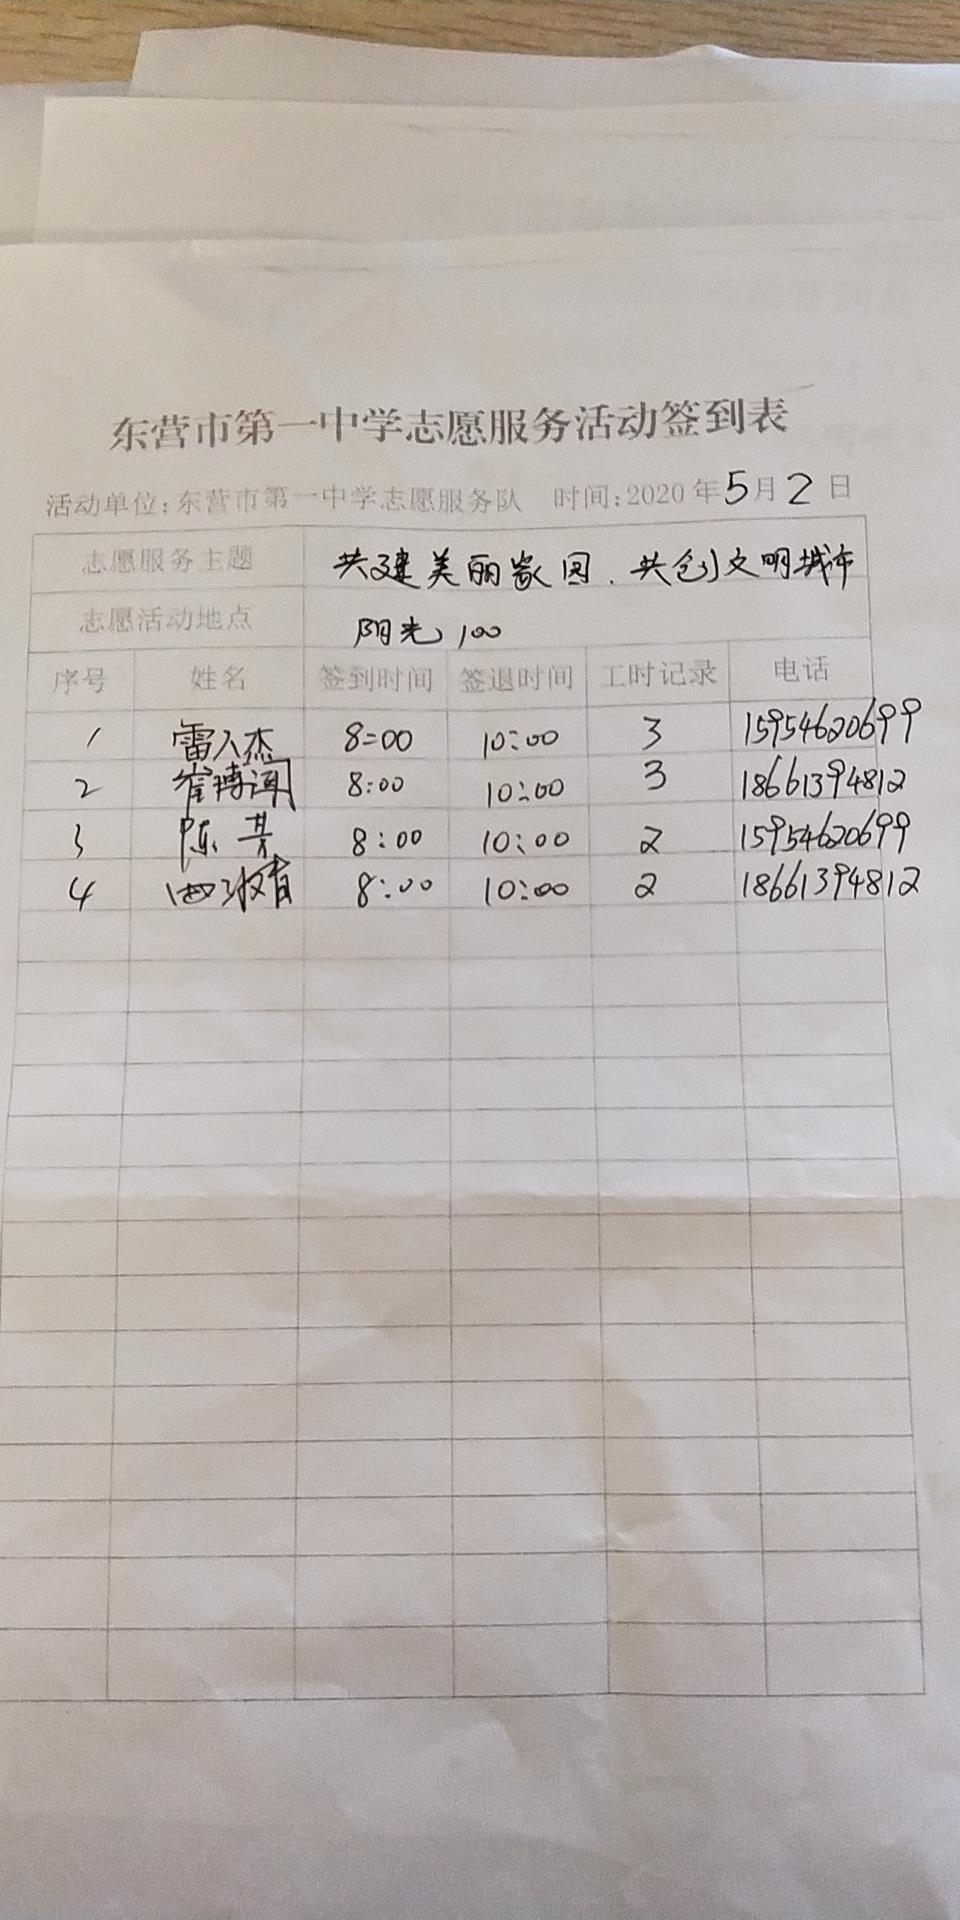 东营市第一中学志愿服务活动签到表
活动单位:东营市第一中学志愿服务队 时间:2020年5月2日
志愿服务主题 共建美丽家园、共创文明城市
志愿活动地点 阳光100
序号 姓名 签到时间 签退时间 工时记录 电话
1 雷人杰 8:00 10:00 3 15954620699
2 崔博闻 8:00 10:00 3 18661394812
3 陈芳 8:00 10:00 2 15954620699
4 8:00 10:00 2 18661394812